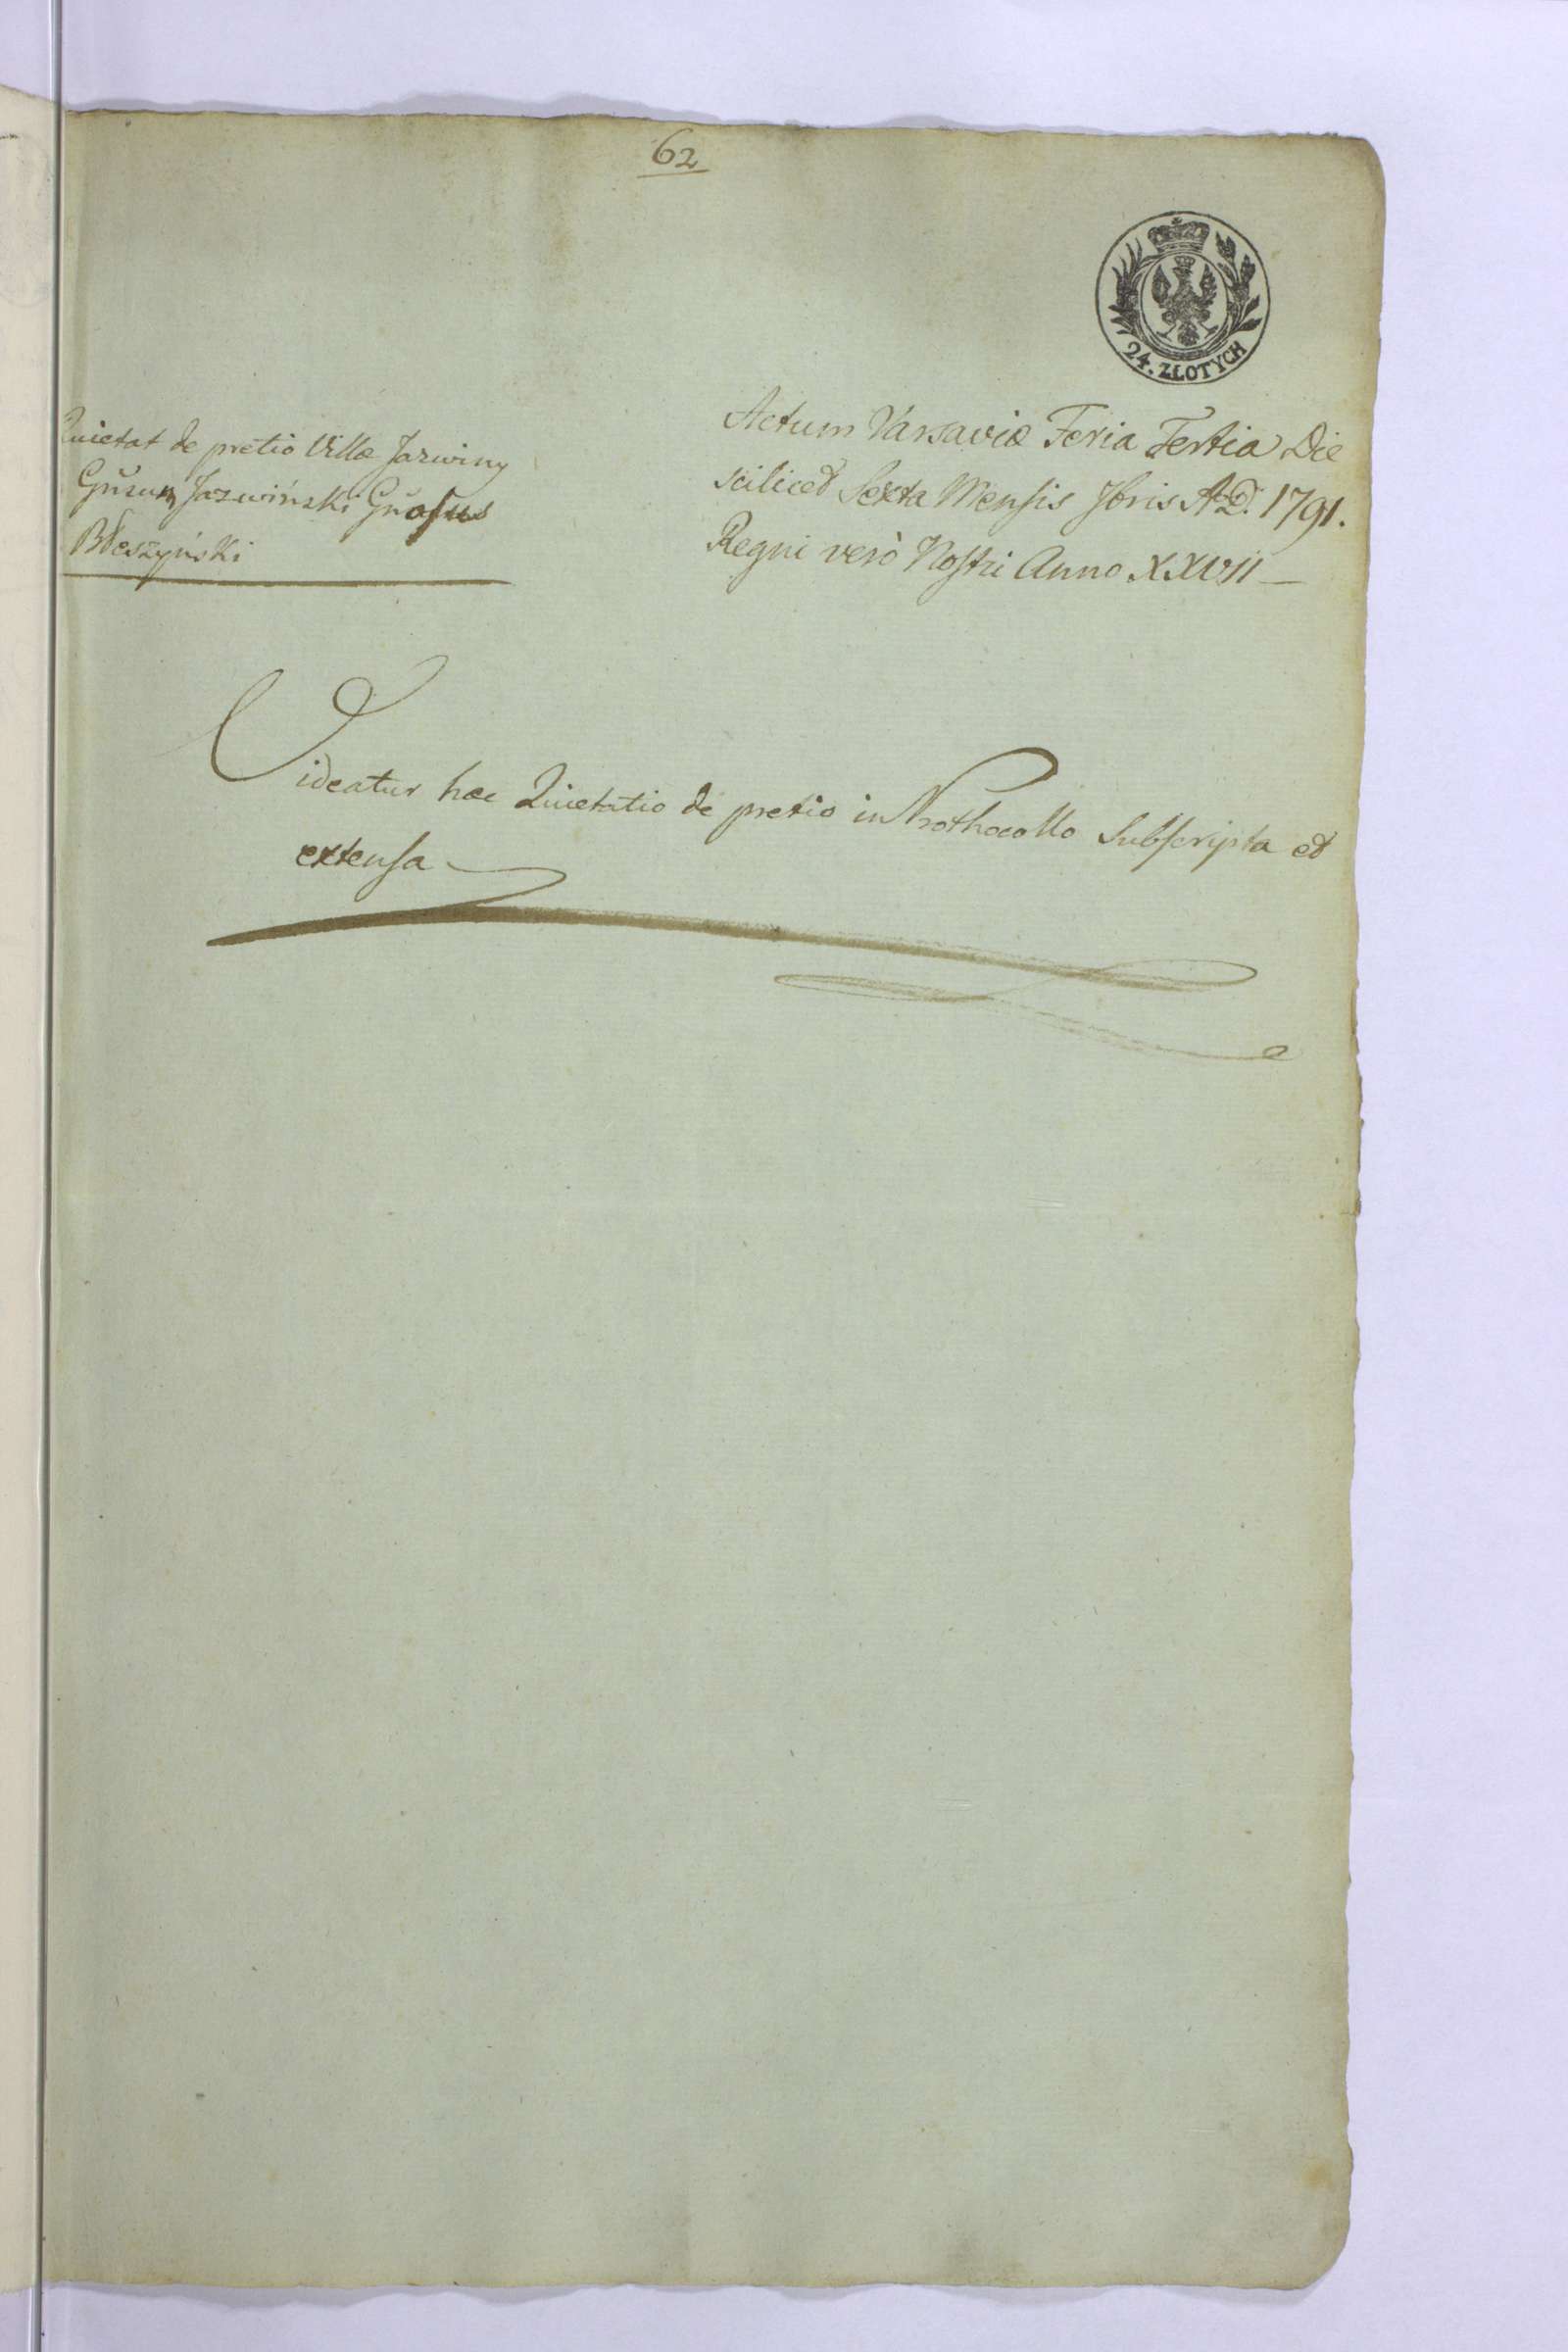 62
24. ZŁOTYCH
Quietat de pretio Villæ Jazwiny
Gnsum Jazwiński Gnosus
Błeszyński
Actum Varsaviæ Feria Tertia Die
scilicet Sexta Mensis 7bris A.D. 1791.
Regni verò Nostri Anno XXVII
Videatur hæc Quietatio de pretio in Prothocollo Subscripta et
extensa